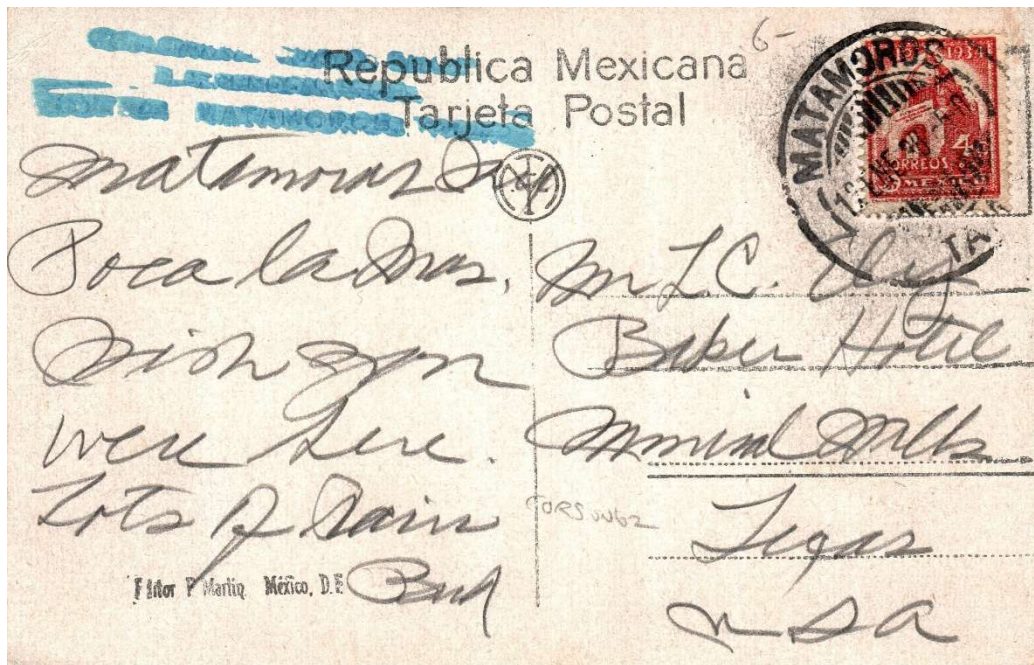 Republica Mexicana
Tarjeta Postal
6-
MATAMOROS
TA
4
CORREOS
MEX
MATAMOROS
Matamoras
Poca la Mas.
Wish you
were here.
Lots of Rain
Bud
Editor P Martin México, D.F.
Mr L.C.
Baker Hotel
Mineral Wells
Texas
USA